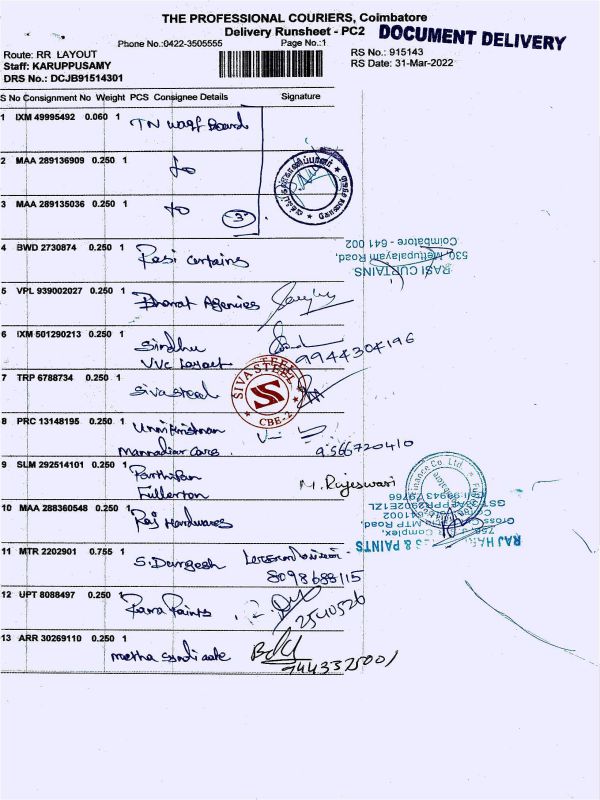 THE PROFESSIONAL COURIERS, Coimbatore
Delivery Runsheet - PC2
DOCUMENT DELIVERY
Phone No.:0422-3505555
Page No.:1
Route: RR LAYOUT
Staff: KARUPPUSAMY
DRS No.: DCJB91514301
RS No.: 915143
RS Date: 31-Mar-2022
S No Consignment No Weight PCS Consignee Details Signature
1 IXM 49995492 0.060 1 TN waqf Board
2 MAA 289136909 0.250 1 do
3 MAA 289135036 0.250 1 do 3
4 BWD 2730874 0.250 1 Rasi curtains
RASI CURTAINS
530, Mettupalayam Road,
Coimbatore - 641 002
5 VPL 939002027 0.250 1 Bharat Agencies
6 IXM 501290213 0.250 1 Sindhu
VVC Layout
9944304196
7 TRP 6788734 0.250 1 Siva steel
SIVA STEEL
SS
CBE-2
8 PRC 13148195 0.250 1 Unnikrishnan
Mannadiar Cars.
9566720410
9 SLM 292514101 0.250 1 Parthiban
Fullerton
M. Rajeswari
10 MAA 288360548 0.250 1 Raj Hardwares
Finance Co. Ltd.
RAJ HAR & PAINTS
Complex,
Cross MTP Road,
641002
11 MTR 2202901 0.755 1 S. Durgesh
8098688115
12 UPT 8088497 0.250 1 Rana Paints
2540526
13 ARR 30269110 0.250 1 metha syndicate
9443325001